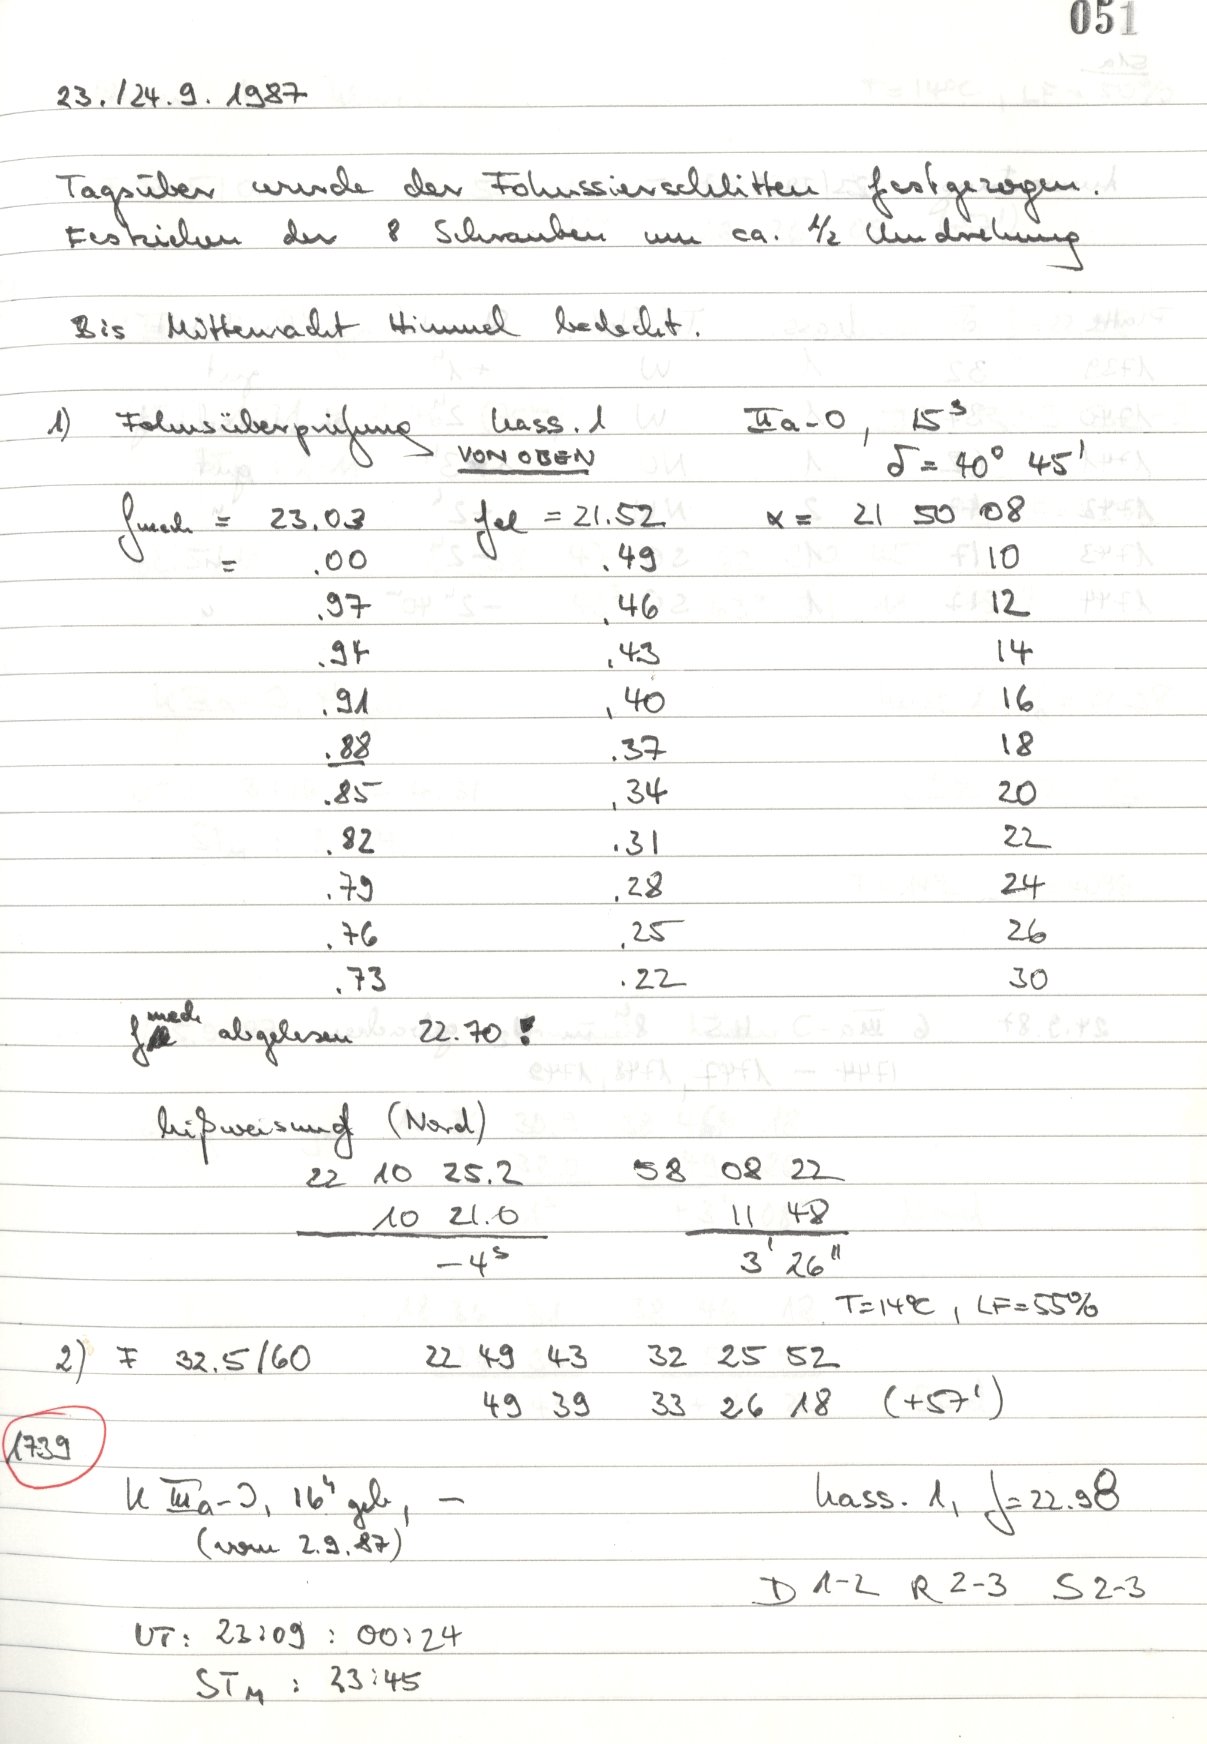 051
23./24.9.1987
Tagsüber wurde der Fokussierschlitten festgezogen.
Festziehen der 8 Schrauben um ca. 1/2 Umdrehung
Bis Mitternacht Himmel bedeckt.
1) Fokusüberprüfung Kass. 1 IIa-O, 15s
VON OBEN δ = 40° 45'
fmech = 23.03 fel = 21.52 α = 21 50 08
= .00 .49 10
.97 .46 12
.94 .43 14
.91 .40 16
.88 .37 18
.85 .34 20
.82 .31 22
.79 .28 24
.76 .25 26
.73 .22 30
fmech abgelesen 22.70!
Mißweisung (Nord)
22 10 25.2 58 08 22
10 21.0 11 48
-4s 3' 26"
T=14°C, LF=55%
2) F 32.5/60 22 49 43 32 25 52
49 39 33 26 18 (+57')
1739
K IIIa-J, 16h geb, – Kass. 1, f=22.98
(vom 2.9.87)
D 1-2 R 2-3 S 2-3
UT: 23:09 : 00:24
STM : 23:45